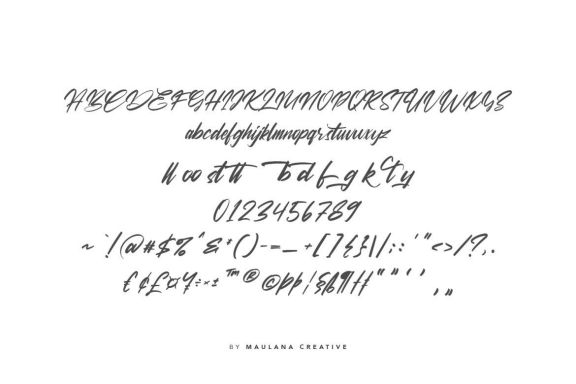 ABCDEFGHIJKLMNOPQRSTUVWXYZ
abcdefghijklmnopqrstuvwxyz
ll oo st tt b d f g k t y
0123456789
~`!@#$%^&*()-=_+[]{}\|/:;'"<>/?,.
¢£¤¥÷×±™®©Þþ¦§ß¶ƒ“”‘’‚„
BY MAULANA CREATIVE